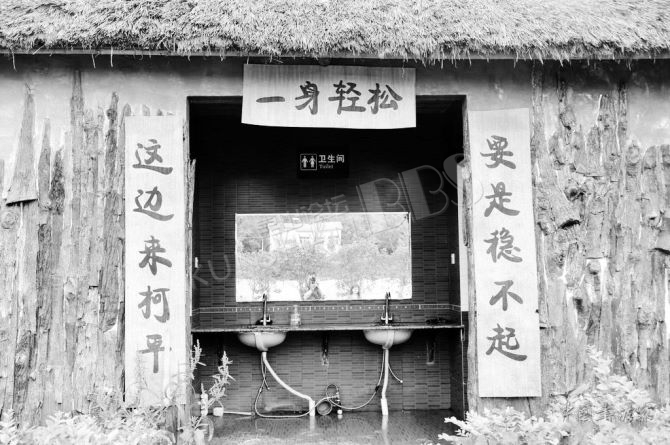 一身轻松
要是稳不起
这边来柯平
卫生间
Toilet